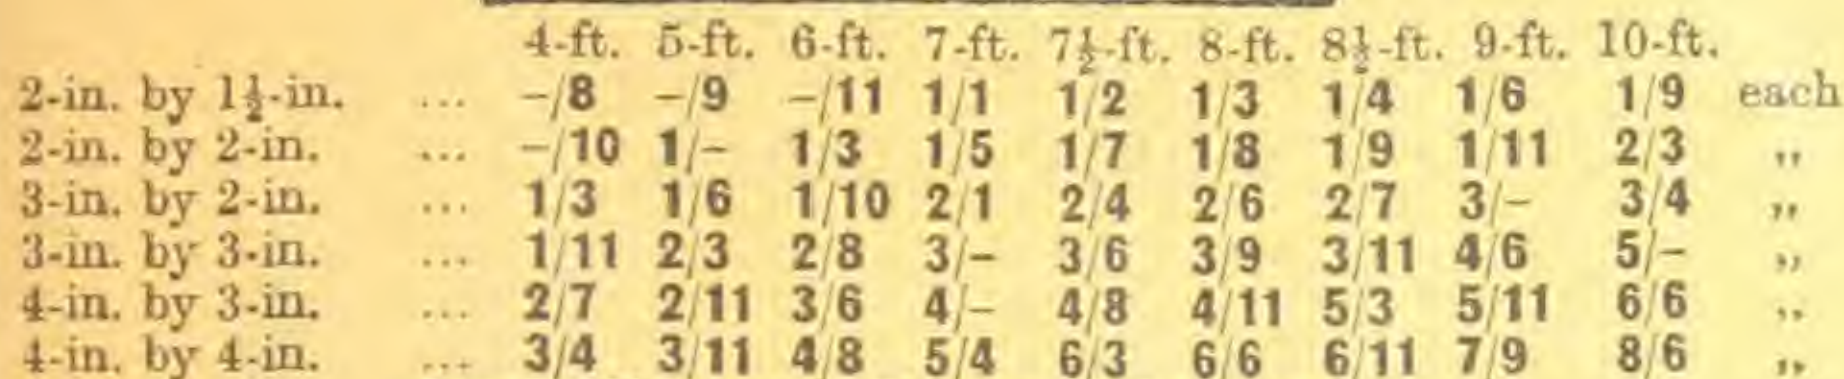 4-ft. 5-ft. 6-ft. 7-ft. 7½-ft. 8-ft. 8½-ft. 9-ft. 10-ft.
2-in. by 1½-in. ... -/8 -/9 -/11 1/1 1/2 1/3 1/4 1/6 1/9 each
2-in. by 2-in. ... -/10 1/- 1/3 1/5 1/7 1/8 1/9 1/11 2/3 "
3-in. by 2-in. ... 1/3 1/6 1/10 2/1 2/4 2/6 2/7 3/- 3/4 "
3-in. by 3-in. ... 1/11 2/3 2/8 3/- 3/6 3/9 3/11 4/6 5/- "
4-in. by 3-in. ... 2/7 2/11 3/6 4/- 4/8 4/11 5/3 5/11 6/6 "
4-in. by 4-in. ... 3/4 3/11 4/8 5/4 6/3 6/6 6/11 7/9 8/6 "